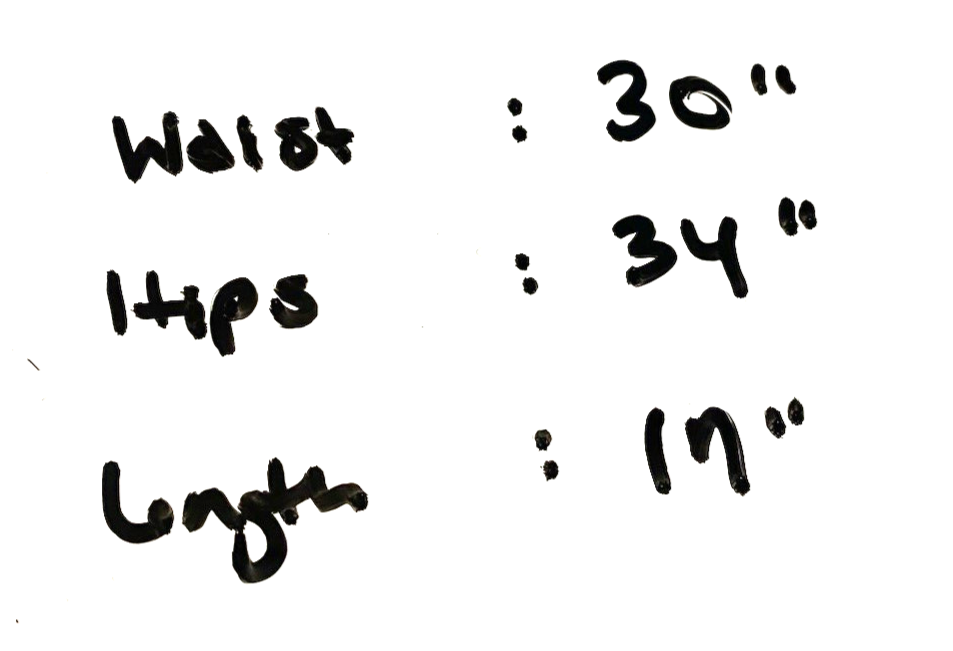 Waist : 30"
Hips : 34"
Length : 17"